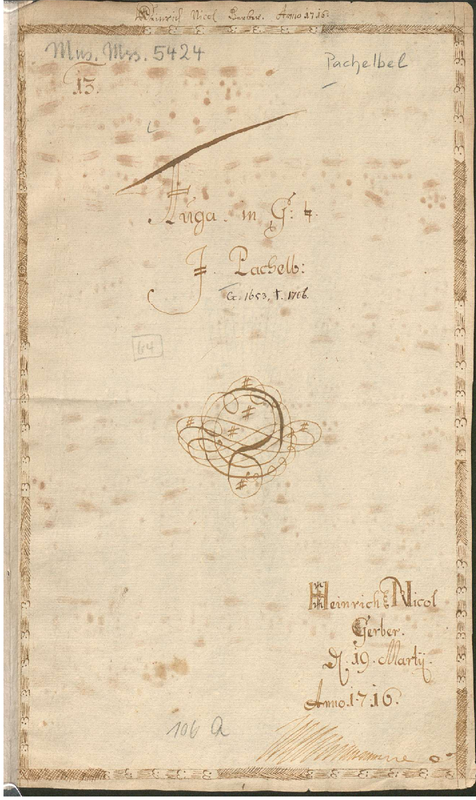 Heinrich Nicol Gerber. Anno 1716.
Mus. Mss. 5424
Pachelbel
13.
Fuga. in G: ♮.
J. Pachelb:
G. 1653, †. 1706.
64
Heinrich Nicol
Gerber.
D. 19. Martij.
Anno. 1716.
106 a